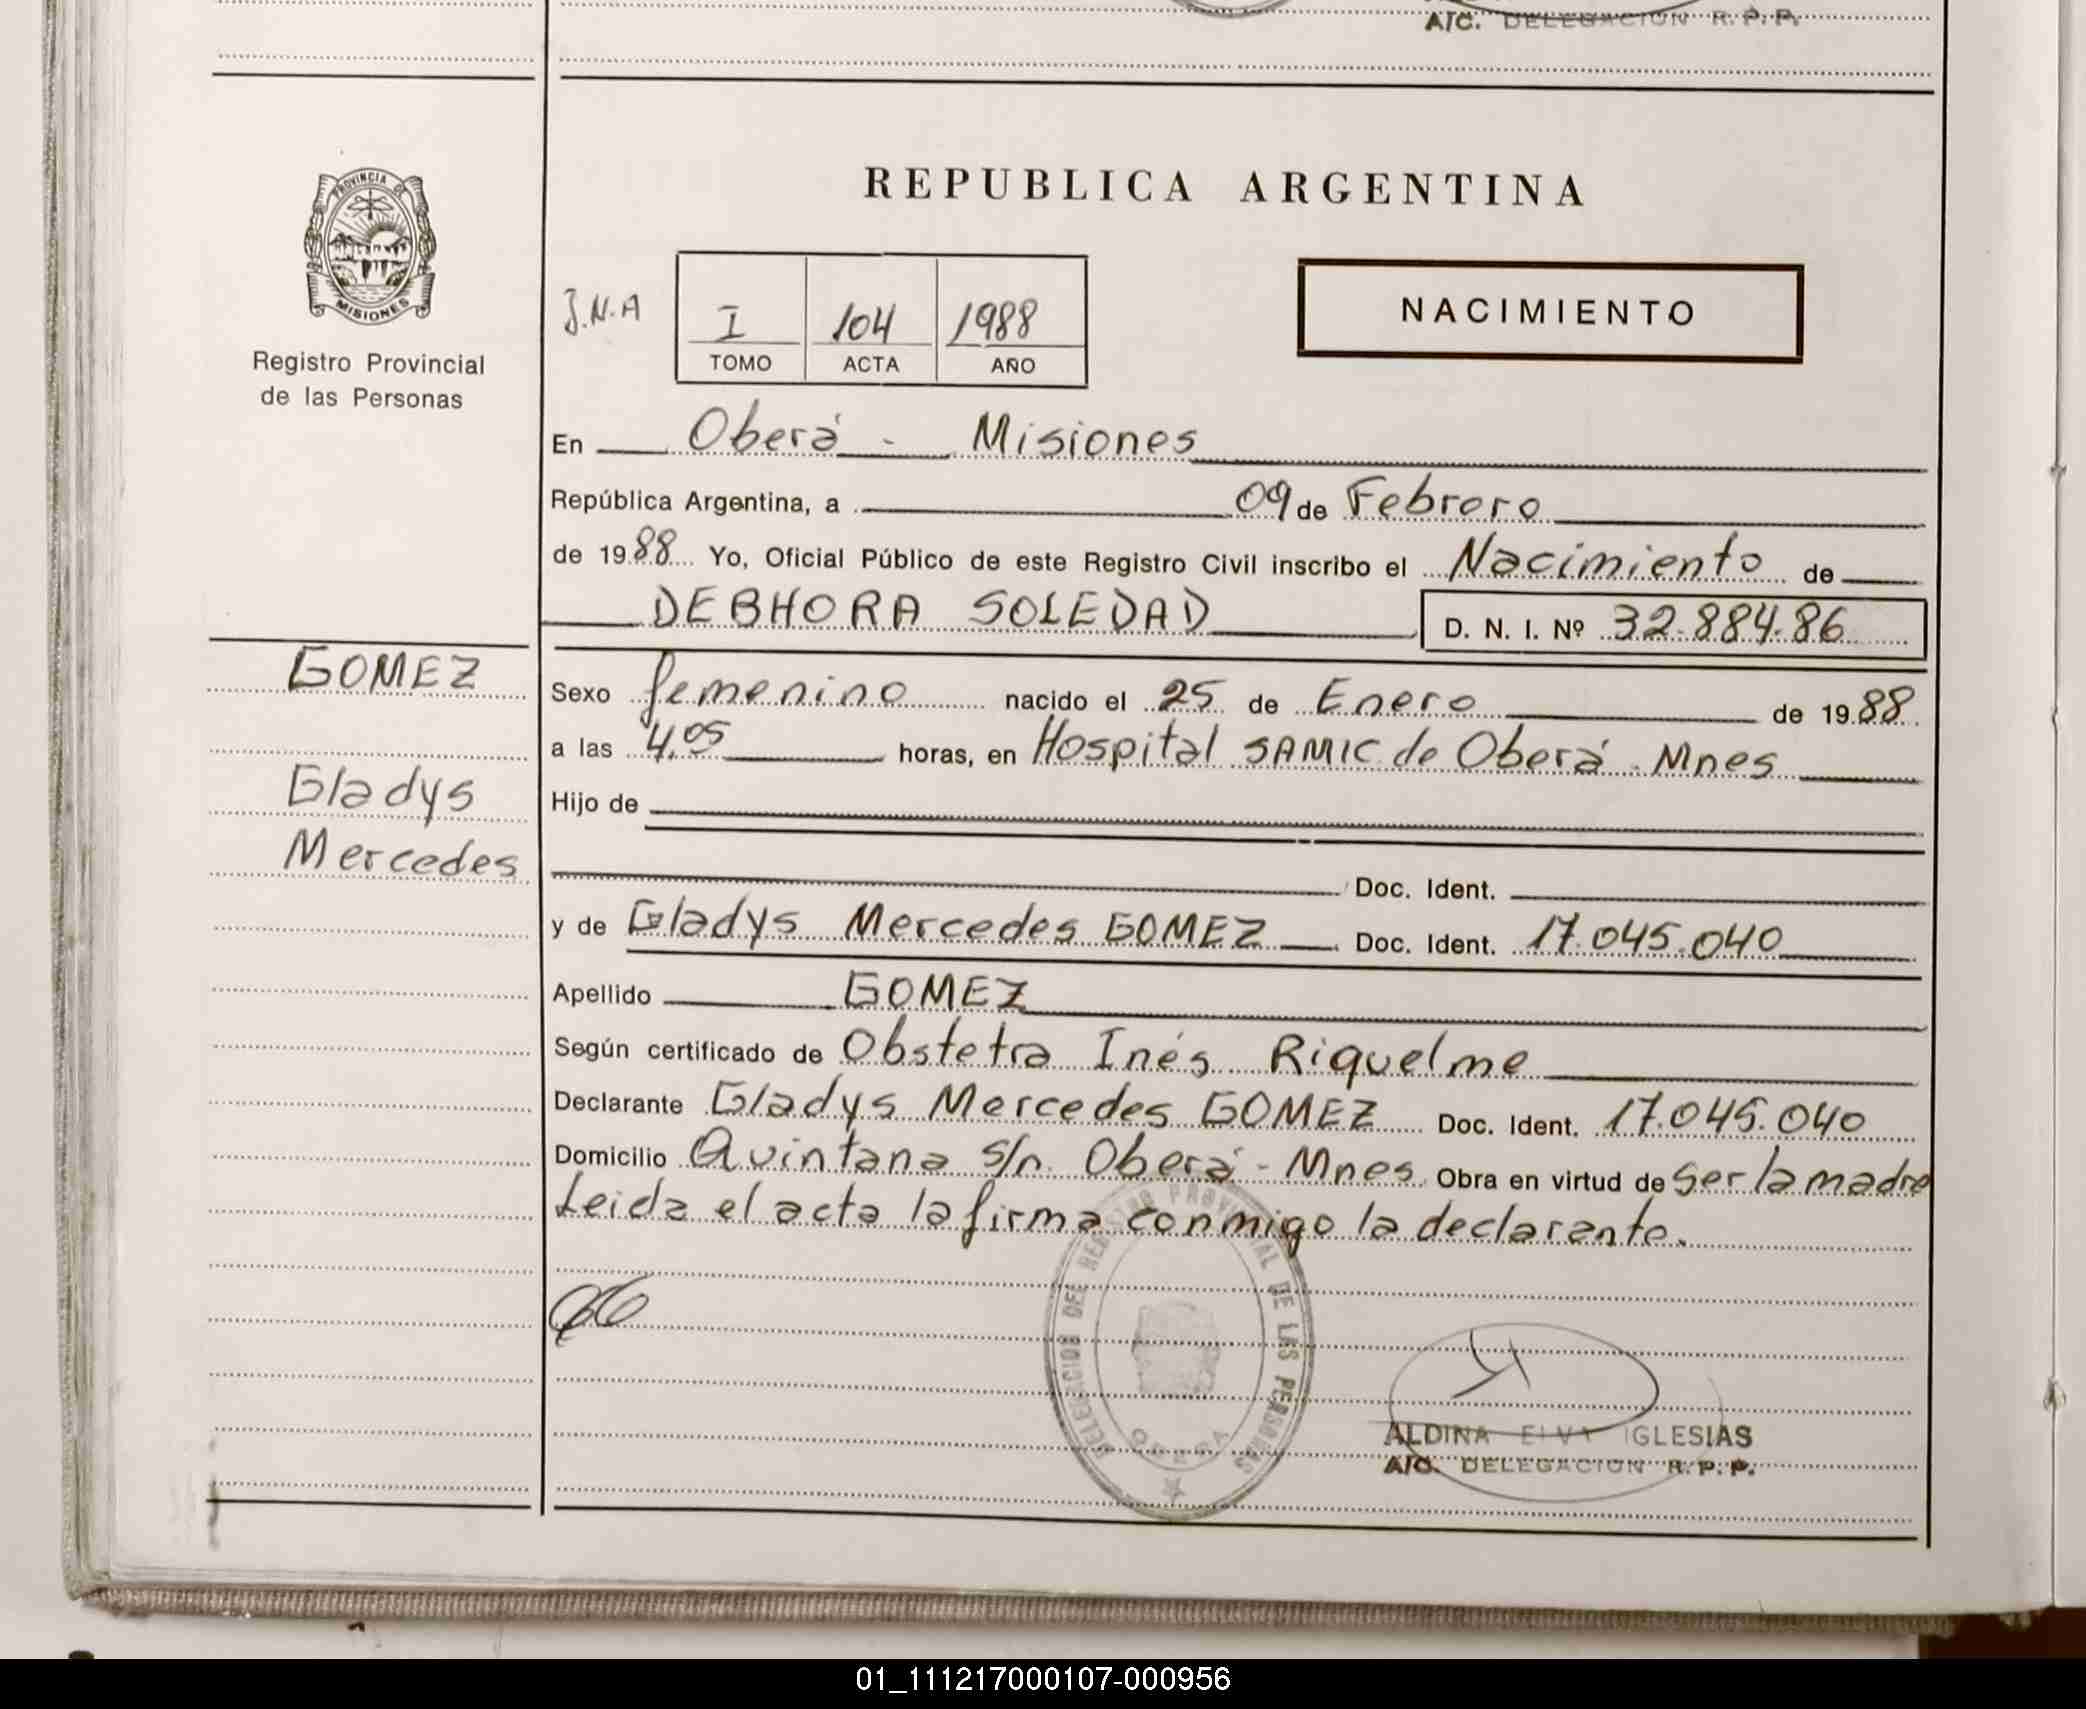 A/C. DELEGACION R. P. P.
PROVINCIA DE
MISIONES
Registro Provincial
de las Personas
REPUBLICA ARGENTINA
J.N.A
I 104 1988
TOMO ACTA AÑO
NACIMIENTO
En Oberá - Misiones
República Argentina, a 09 de Febrero
de 1988 Yo, Oficial Público de este Registro Civil inscribo el Nacimiento de
DEBHORA SOLEDAD D. N. I. Nº 32.884.86
GOMEZ
Sexo femenino nacido el 25 de Enero de 1988
a las 4,05 horas, en Hospital SAMIC de Oberá - Mnes
Gladys
Mercedes
Hijo de
Doc. Ident.
y de Gladys Mercedes GOMEZ Doc. Ident. 17.045.040
Apellido GOMEZ
Según certificado de Obstetra Inés Riquelme
Declarante Gladys Mercedes GOMEZ Doc. Ident. 17.045.040
Domicilio Quintana s/n. Oberá - Mnes Obra en virtud de ser la madre
Leida el acta la firma conmigo la declarante.
DELEGACION DEL REGISTRO PROVINCIAL DE LAS PERSONAS
OBERA
ALDINA ELVA IGLESIAS
A/C. DELEGACION R. P. P.
01_111217000107-000956